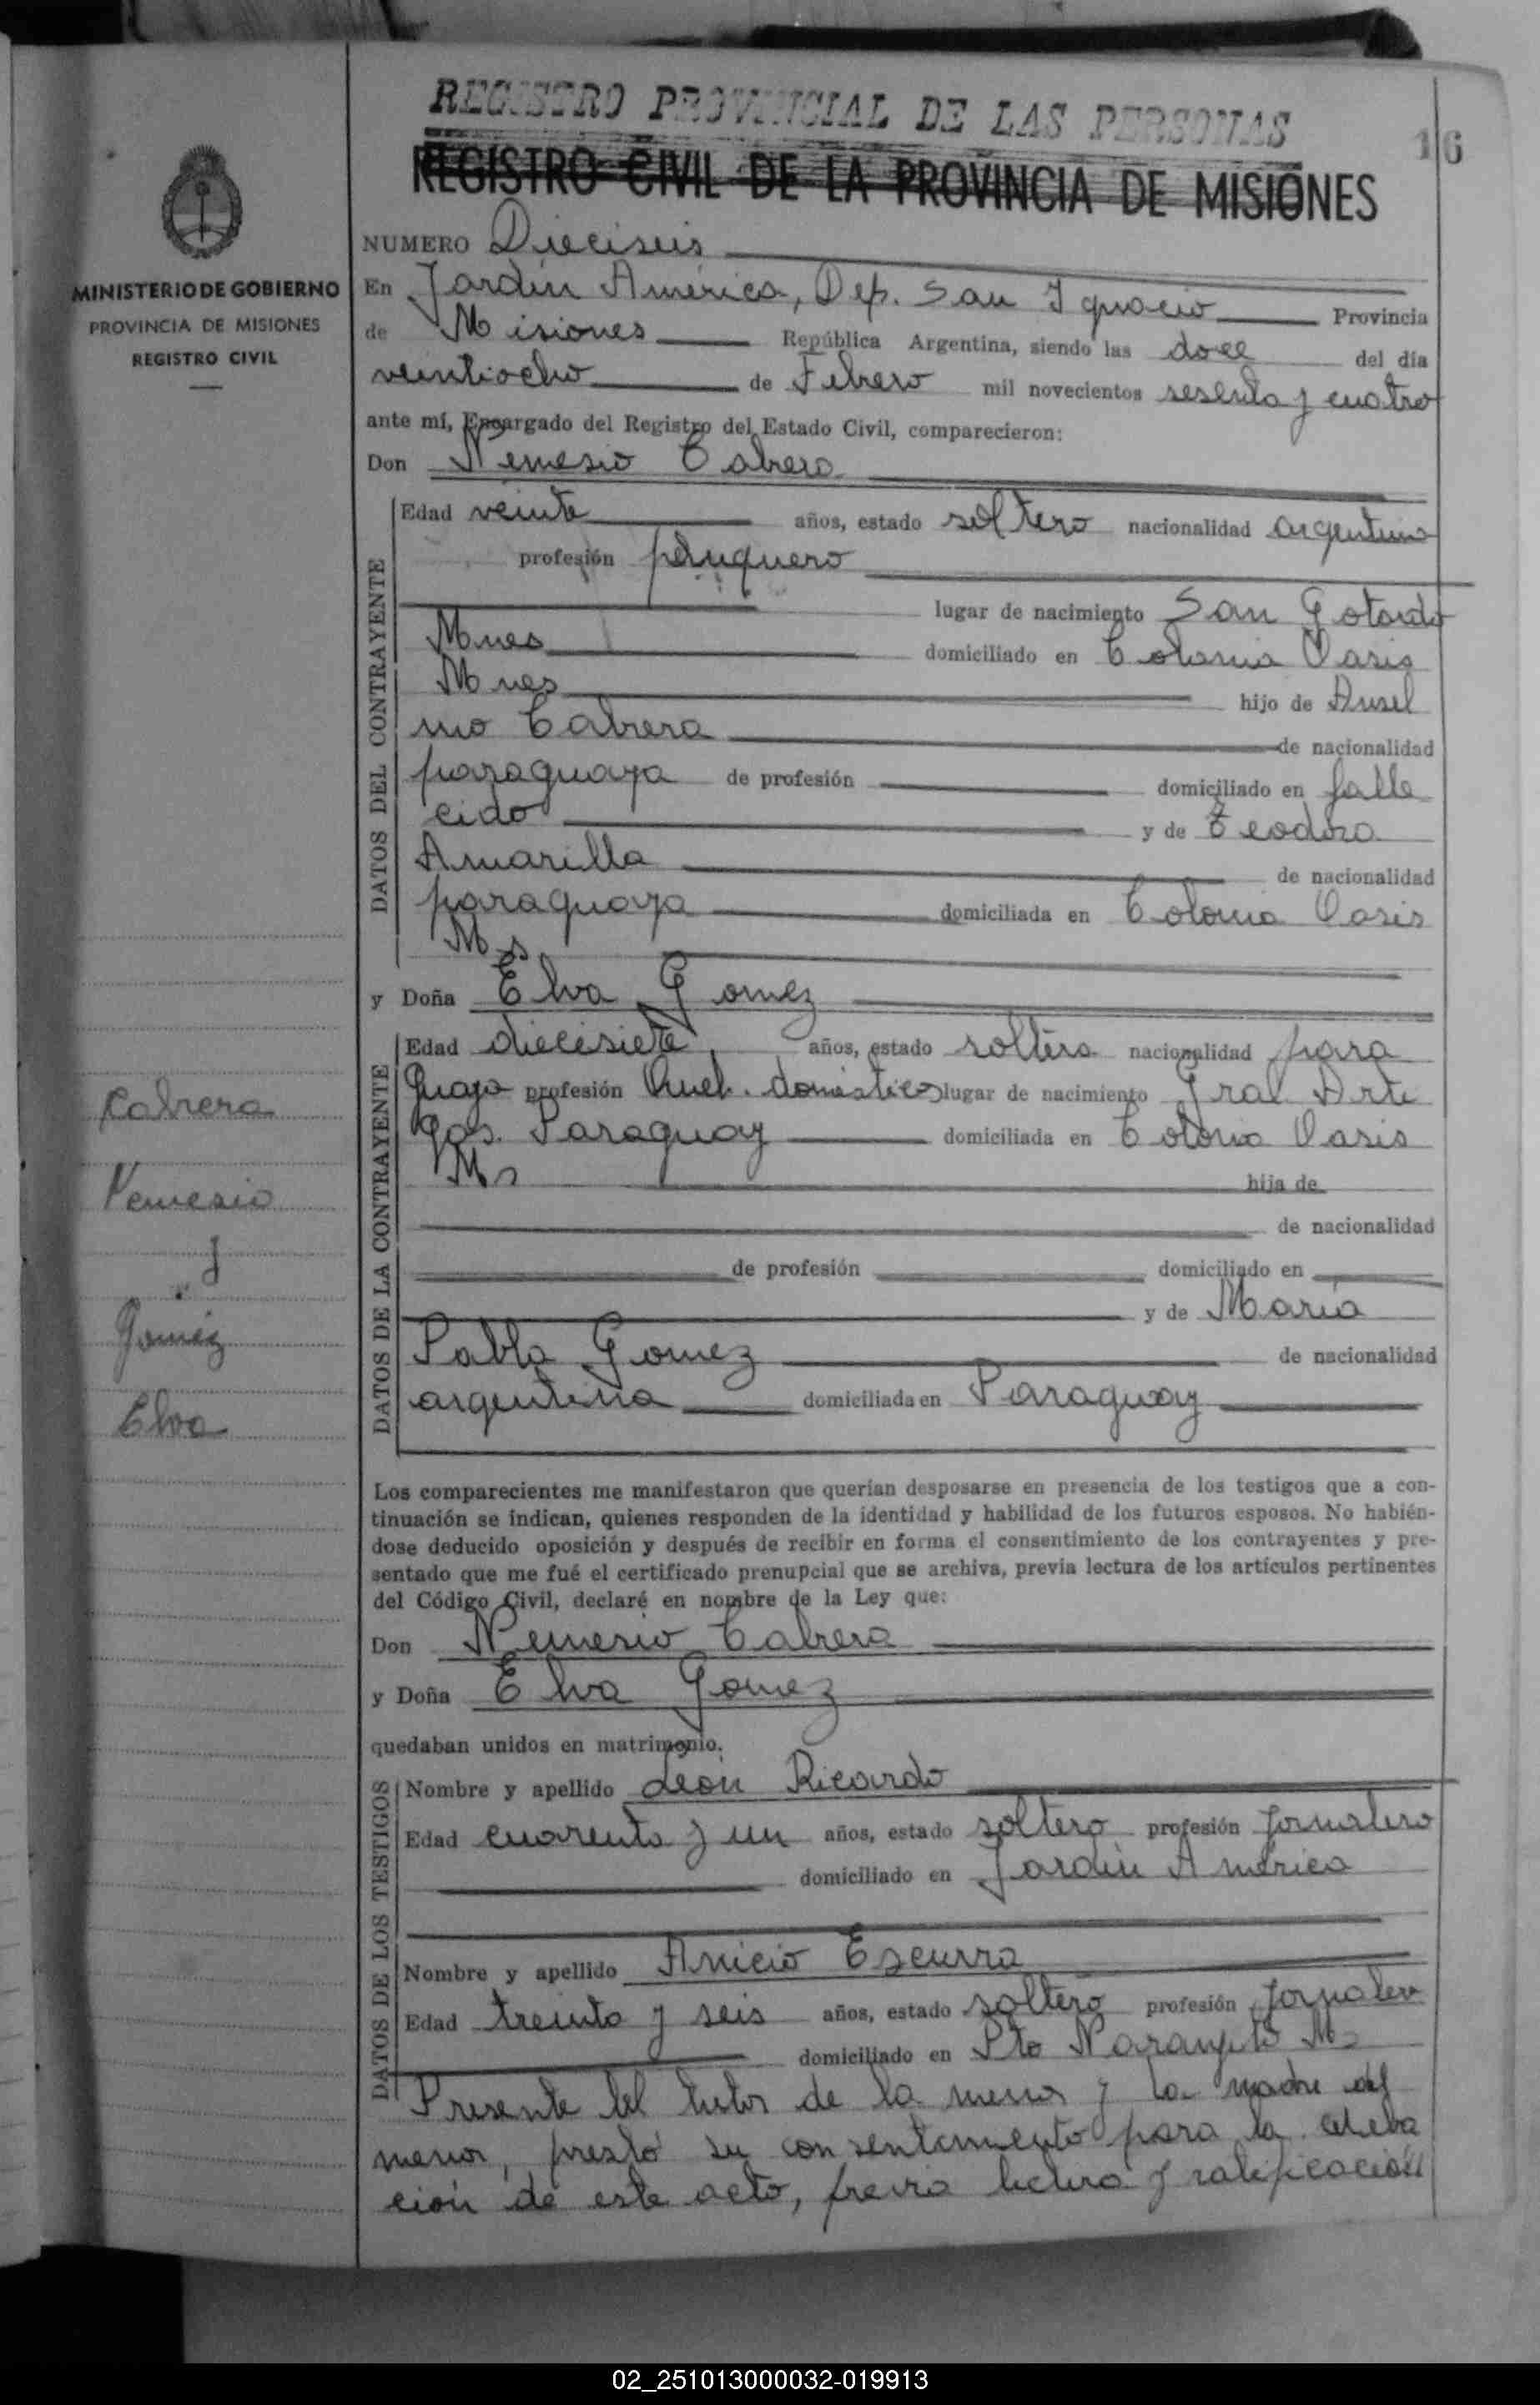 REGISTRO PROVINCIAL DE LAS PERSONAS
16
REGISTRO CIVIL DE LA PROVINCIA DE MISIONES
MINISTERIO DE GOBIERNO
PROVINCIA DE MISIONES
REGISTRO CIVIL
NUMERO Dieciseis
En Jardín América, Dep. San Ignacio Provincia
de Misiones República Argentina, siendo las doce del día
veintiocho de Febrero mil novecientos sesenta y cuatro
ante mí, Encargado del Registro del Estado Civil, comparecieron:
Don Nemesio Cabrera
DATOS DEL CONTRAYENTE
Edad veinte años, estado soltero nacionalidad argentino
profesión peluquero
lugar de nacimiento San Gotardo
Mnes domiciliado en Colonia Oasis
Mnes hijo de Ansel
mo Cabrera de nacionalidad
paraguaya de profesión domiciliado en falle
cido y de Teodora
Amarilla de nacionalidad
paraguaya domiciliada en Colonia Oasis
Ms
y Doña Elva Gomez
DATOS DE LA CONTRAYENTE
Edad diecisiete años, estado soltera nacionalidad para
guaya profesión Queh. domésticos lugar de nacimiento Gral Arti
gas. Paraguay domiciliada en Colonia Oasis
Ms hija de
de nacionalidad
de profesión domiciliado en
y de María
Pabla Gomez de nacionalidad
argentina domiciliada en Paraguay
Cabrera
Nemesio
y
Gomez
Elva
Los comparecientes me manifestaron que querían desposarse en presencia de los testigos que a con-
tinuación se indican, quienes responden de la identidad y habilidad de los futuros esposos. No habién-
dose deducido oposición y después de recibir en forma el consentimiento de los contrayentes y pre-
sentado que me fué el certificado prenupcial que se archiva, previa lectura de los artículos pertinentes
del Código Civil, declaré en nombre de la Ley que:
Don Nemesio Cabrera
y Doña Elva Gomez
quedaban unidos en matrimonio.
DATOS DE LOS TESTIGOS
Nombre y apellido León Ricardo
Edad cuarenta y un años, estado soltero profesión jornalero
domiciliado en Jardín América
Nombre y apellido Anicio Escurra
Edad treinta y seis años, estado soltero profesión jornalero
domiciliado en Pto Naranjito Ms
Presente el tutor de la menor y la madre del
menor, prestó su consentimiento para la celebra
ción de este acto, previa lectura y ratificación
02_251013000032-019913